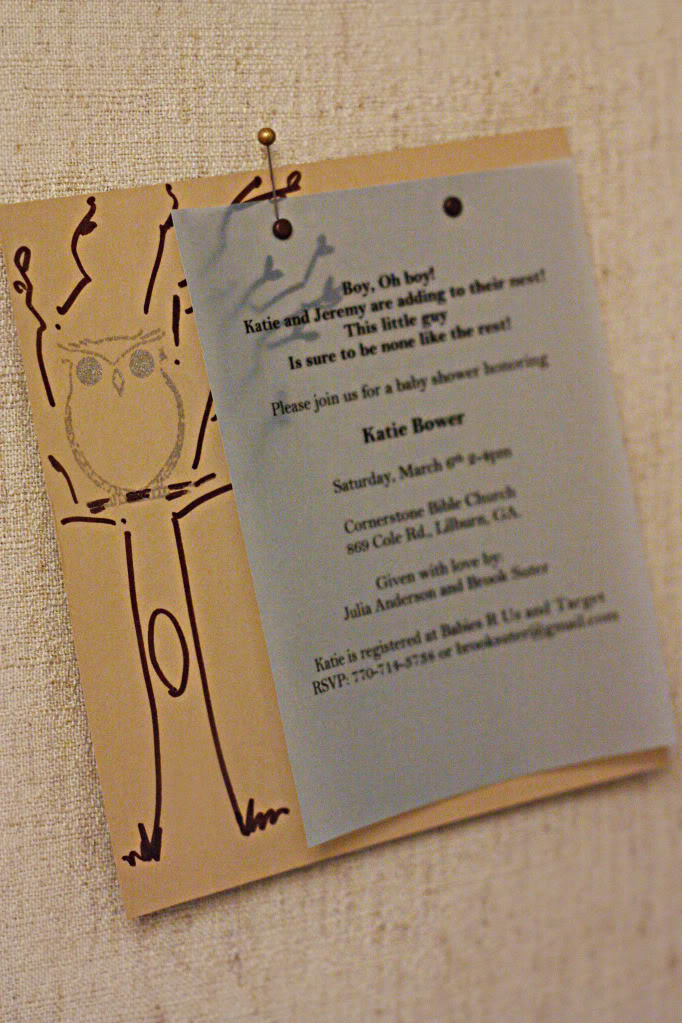 Boy, Oh boy!
Katie and Jeremy are adding to their nest!
This little guy
Is sure to be none like the rest!
Please join us for a baby shower honoring
Katie Bower
Saturday, March 6th 2-4pm
Cornerstone Bible Church
869 Cole Rd., Lilburn, GA.
Given with love by:
Julia Anderson and Brook Suter
Katie is registered at Babies R Us and Target
RSVP: 770-714-5738 or brooksuter@gmail.com